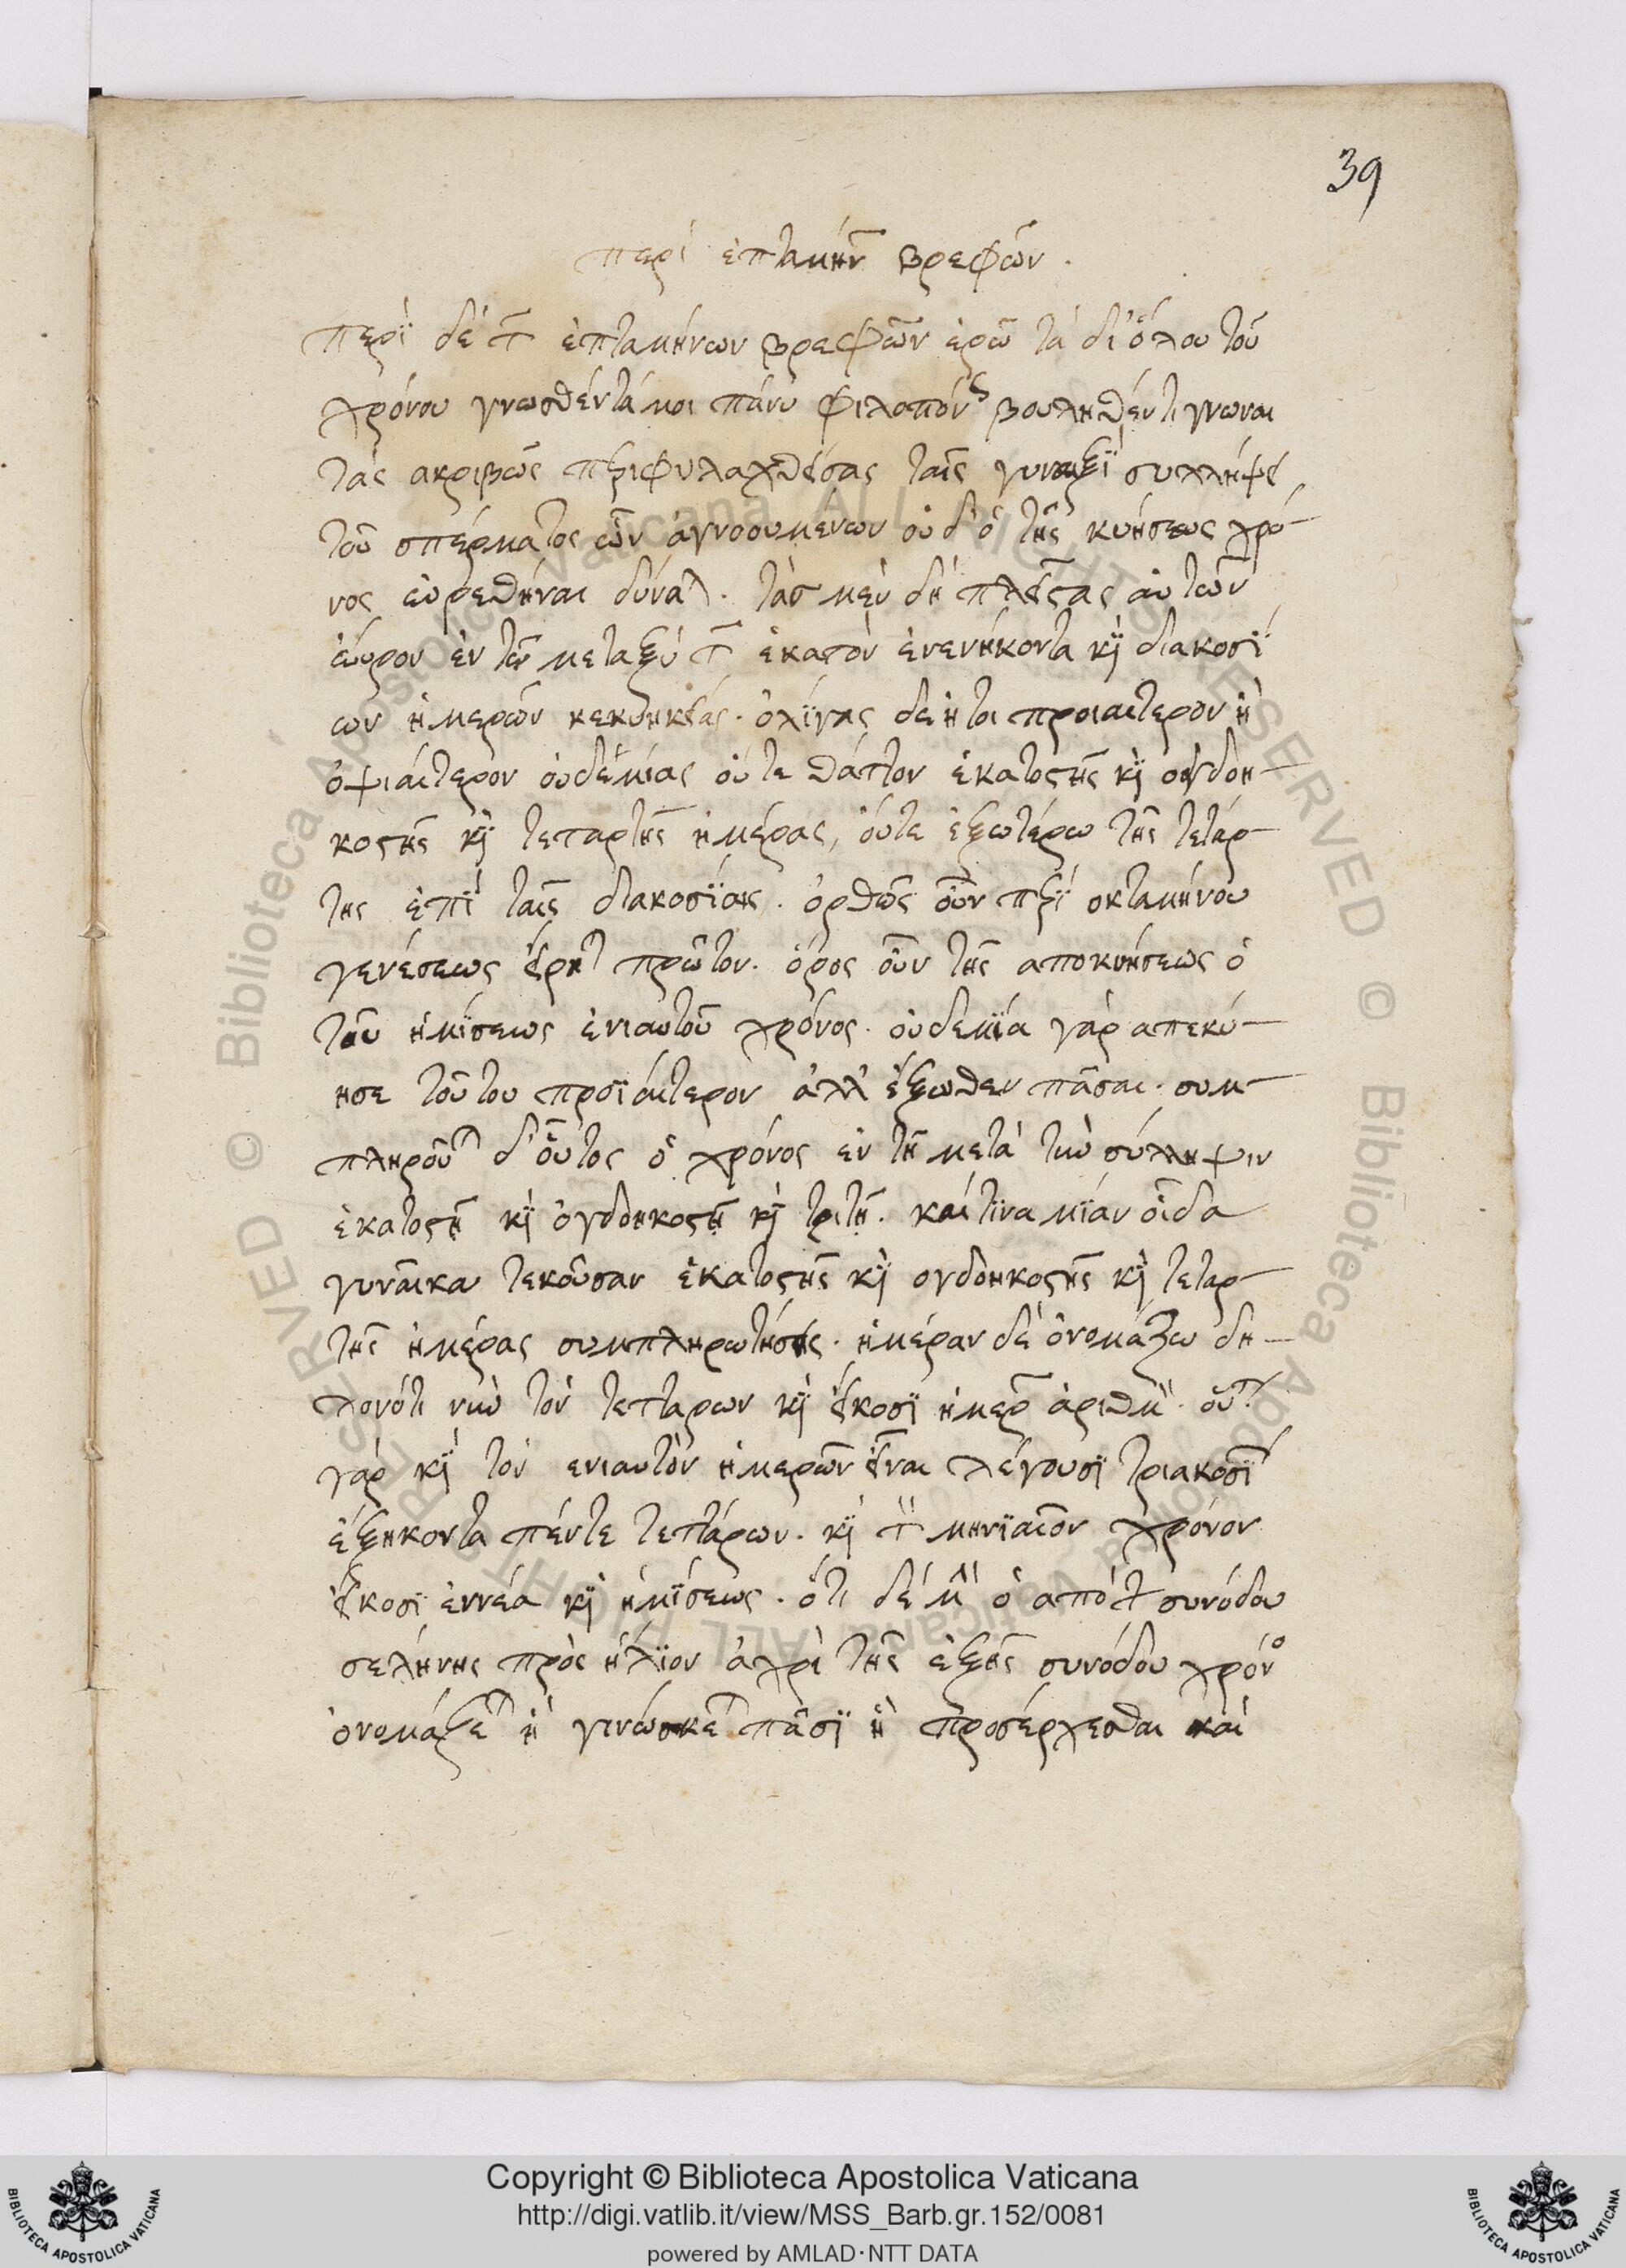 39
περί ἑπταμήν βρεφῶν.
περὶ δέ τ̃ ἑπταμήνων βρεφῶν ἐρῶ τά δι' ὅλου τοῦ
χρόνου γνωσθέντά μοι πάνυ φιλοπόνς βουληθέντι γνωναι
τάς ακριβῶς περιφυλαχθείσας ταῖς γυναιξὶ συλλήψει
τοῦ σπέρματος ὧν ἀγνοουμένων οὐδ' ὁ τῆς κυήσεως χρό-
νος εὑρεθῆναι δύναται. τάσ μέν δή πλείστας αὐτῶν
εὗρον ἐν τῷ μεταξύ τ̃ ἑκατόν ἐνενήκοντα κὶ διακοσί
ων ἡμερῶν κεκυηκυίας. ὀλίγας δε ἤτοι πρωιαίτερον ἢ
ὀψιαίτερον οὐδεμίας οὔτε θάττον ἑκατοστῆς κὶ ογδοη-
κοστῆς κὶ τεταρτῆς ἡμέρας, οὔτε ἐξωτέρω τῆς τετάρ-
της ἐπί ταῖς διακοσίαις. ὀρθῶς οὖν περί οκταμήνου
γενέσεως εἴρηται πρῶτον. ὅρος οὖν τῆς αποκυήσεως ὁ
τοῦ ἡμίσεως ἐνιαυτοῦ χρόνος. οὐδεμία γάρ απεκύ-
ησε τούτου προϊαίτερον ἀλλ' ἔξωθεν πᾶσαι. συμ-
πληροῦται δ' οὗτος ὁ χρόνος ἐν τῆ μετά τὴν σύλληψιν
ἑκατοστῆ κὶ ὀγδοηκοστῆ κὶ τρίτη. καί τινα μίαν οἶδα
γυναῖκα τεκοῦσαν ἑκατοστῆς κὶ ογδοηκοστῆς κὶ τεταρ-
τῆς ἡμέρας συμπληρωτήσης. ἡμέραν δὲ ὀνομάζω δη-
λονότι νῦν τόν τεττάρων κὶ εἴκοσι ἡμερ ἀριθμ. οὕτω
γάρ κὶ τόν ενιαυτόν ἡμερῶν εἶναι λέγουσι τριακοσί
ἑξήκοντα πέντε τεττάρων. κὶ τ̀ μηνιαῖον χρόνον
εἴκοσι ἐννέα κὶ ἡμίσεως. ὅτι δέ μ ὁ από τ συνόδου
σελήνης πρὸς ἥλιον ἄχρι τῆς ἑξῆς συνόδου χρόνο
ὀνομάζεται ἢ γινώσκεται πᾶσι ἢ προσέρχεσθαι καί
Copyright © Biblioteca Apostolica Vaticana
http://digi.vatlib.it/view/MSS_Barb.gr.152/0081
powered by AMLAD·NTT DATA